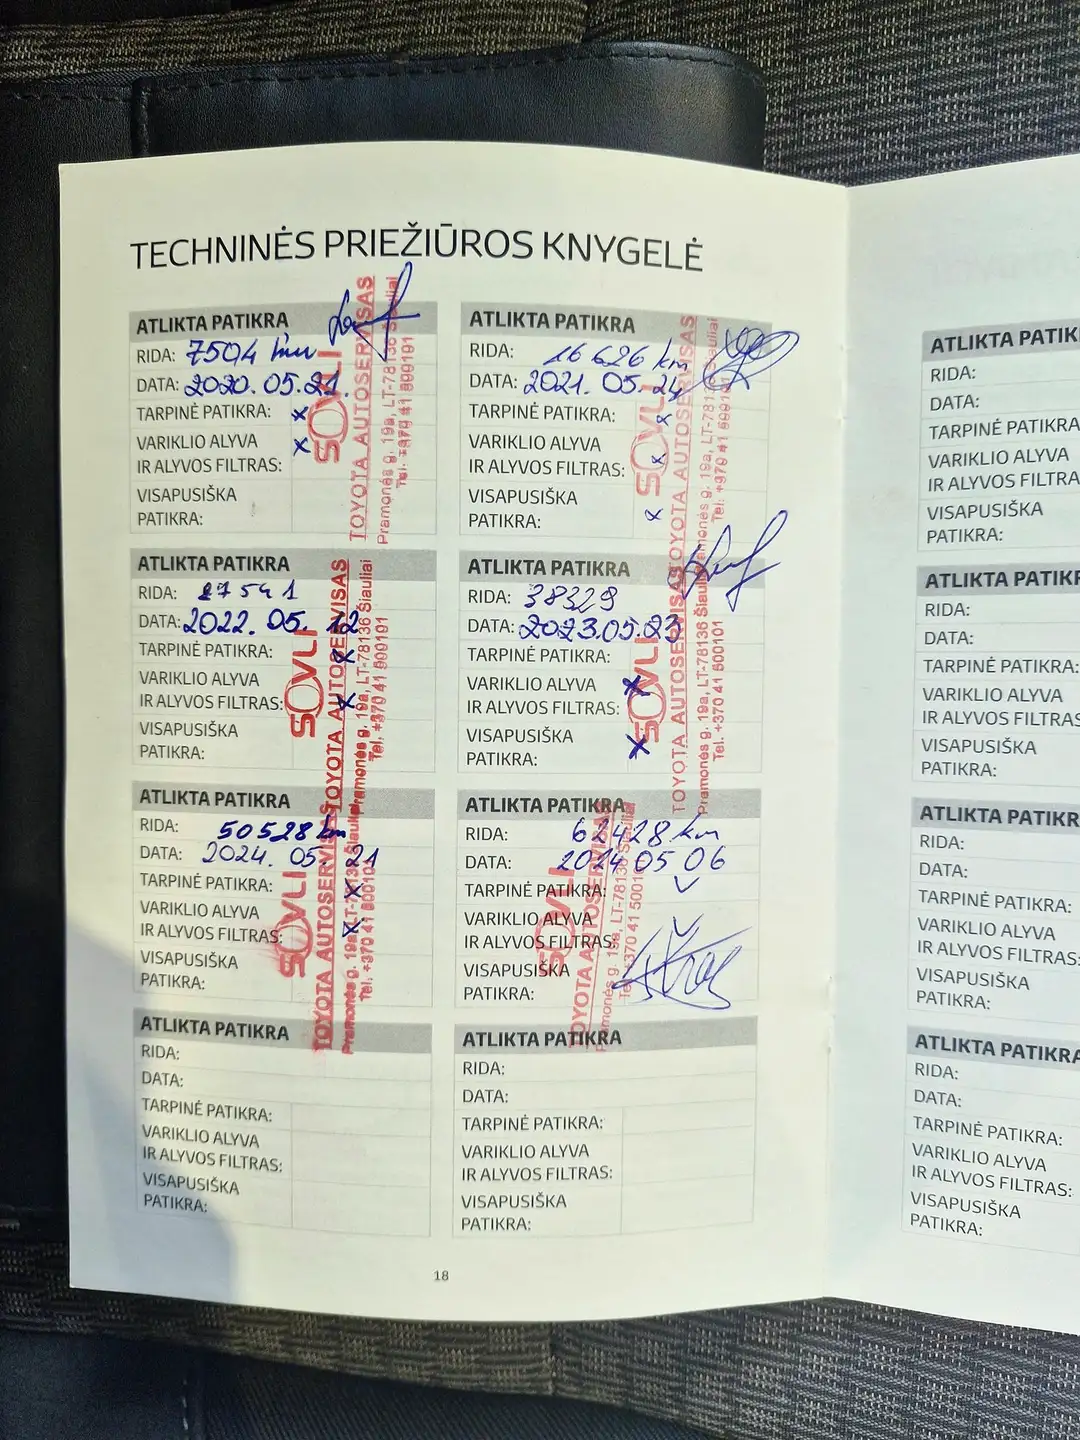 TECHNINĖS PRIEŽIŪROS KNYGELĖ
ATLIKTA PATIKRA
RIDA: 7504 km
DATA: 2020.05.21.
TARPINĖ PATIKRA: x
VARIKLIO ALYVA x
IR ALYVOS FILTRAS:
VISAPUSIŠKA
PATIKRA:
SOVLI
TOYOTA AUTOSERVISAS
Pramonės g. 19a, LT-78136 Šiauliai
Tel. +370 41 500101
ATLIKTA PATIKRA
RIDA: 16 626 km
DATA: 2021. 05.
TARPINĖ PATIKRA: x
VARIKLIO ALYVA
IR ALYVOS FILTRAS: x
VISAPUSIŠKA
PATIKRA: x
SOVLI
TOYOTA AUTOSERVISAS
Pramonės g. 19a, LT-78136 Šiauliai
Tel. +370 41 500101
ATLIKTA PATIKRA
RIDA: 27541
DATA: 2022. 05. 12
TARPINĖ PATIKRA: x
VARIKLIO ALYVA
IR ALYVOS FILTRAS: x
VISAPUSIŠKA
PATIKRA:
SOVLI
TOYOTA AUTOSERVISAS
Pramonės g. 19a, LT-78136 Šiauliai
Tel. +370 41 500101
ATLIKTA PATIKRA
RIDA: 38329
DATA: 2023.05.23
TARPINĖ PATIKRA:
VARIKLIO ALYVA x
IR ALYVOS FILTRAS:
VISAPUSIŠKA
PATIKRA: x
SOVLI
TOYOTA AUTOSERVISAS
Pramonės g. 19a, LT-78136 Šiauliai
Tel. +370 41 500101
ATLIKTA PATIKRA
RIDA: 50528 km
DATA: 2024. 05. 21
TARPINĖ PATIKRA: x
VARIKLIO ALYVA
IR ALYVOS FILTRAS: x
VISAPUSIŠKA
PATIKRA:
SOVLI
TOYOTA AUTOSERVISAS
Pramonės g. 19a, LT-78136 Šiauliai
Tel. +370 41 500101
ATLIKTA PATIKRA
RIDA: 62428 km
DATA: 05 06
TARPINĖ PATIKRA: v
VARIKLIO ALYVA v
IR ALYVOS FILTRAS:
VISAPUSIŠKA
PATIKRA:
SOVLI
TOYOTA AUTOSERVISAS
Pramonės g. 19a, LT-78136 Šiauliai
Tel. +370 41 500101
ATLIKTA PATIKRA
RIDA:
DATA:
TARPINĖ PATIKRA:
VARIKLIO ALYVA
IR ALYVOS FILTRAS:
VISAPUSIŠKA
PATIKRA:
ATLIKTA PATIKRA
RIDA:
DATA:
TARPINĖ PATIKRA:
VARIKLIO ALYVA
IR ALYVOS FILTRAS:
VISAPUSIŠKA
PATIKRA:
18
ATLIKTA PATIK
RIDA:
DATA:
TARPINĖ PATIKRA
VARIKLIO ALYVA
IR ALYVOS FILTRA
VISAPUSIŠKA
PATIKRA:
ATLIKTA PATIKR
RIDA:
DATA:
TARPINĖ PATIKRA:
VARIKLIO ALYVA
IR ALYVOS FILTRAS
VISAPUSIŠKA
PATIKRA:
ATLIKTA PATIKR
RIDA:
DATA:
TARPINĖ PATIKRA:
VARIKLIO ALYVA
IR ALYVOS FILTRAS:
VISAPUSIŠKA
PATIKRA:
ATLIKTA PATIKRA
RIDA:
DATA:
TARPINĖ PATIKRA:
VARIKLIO ALYVA
IR ALYVOS FILTRAS:
VISAPUSIŠKA
PATIKRA: